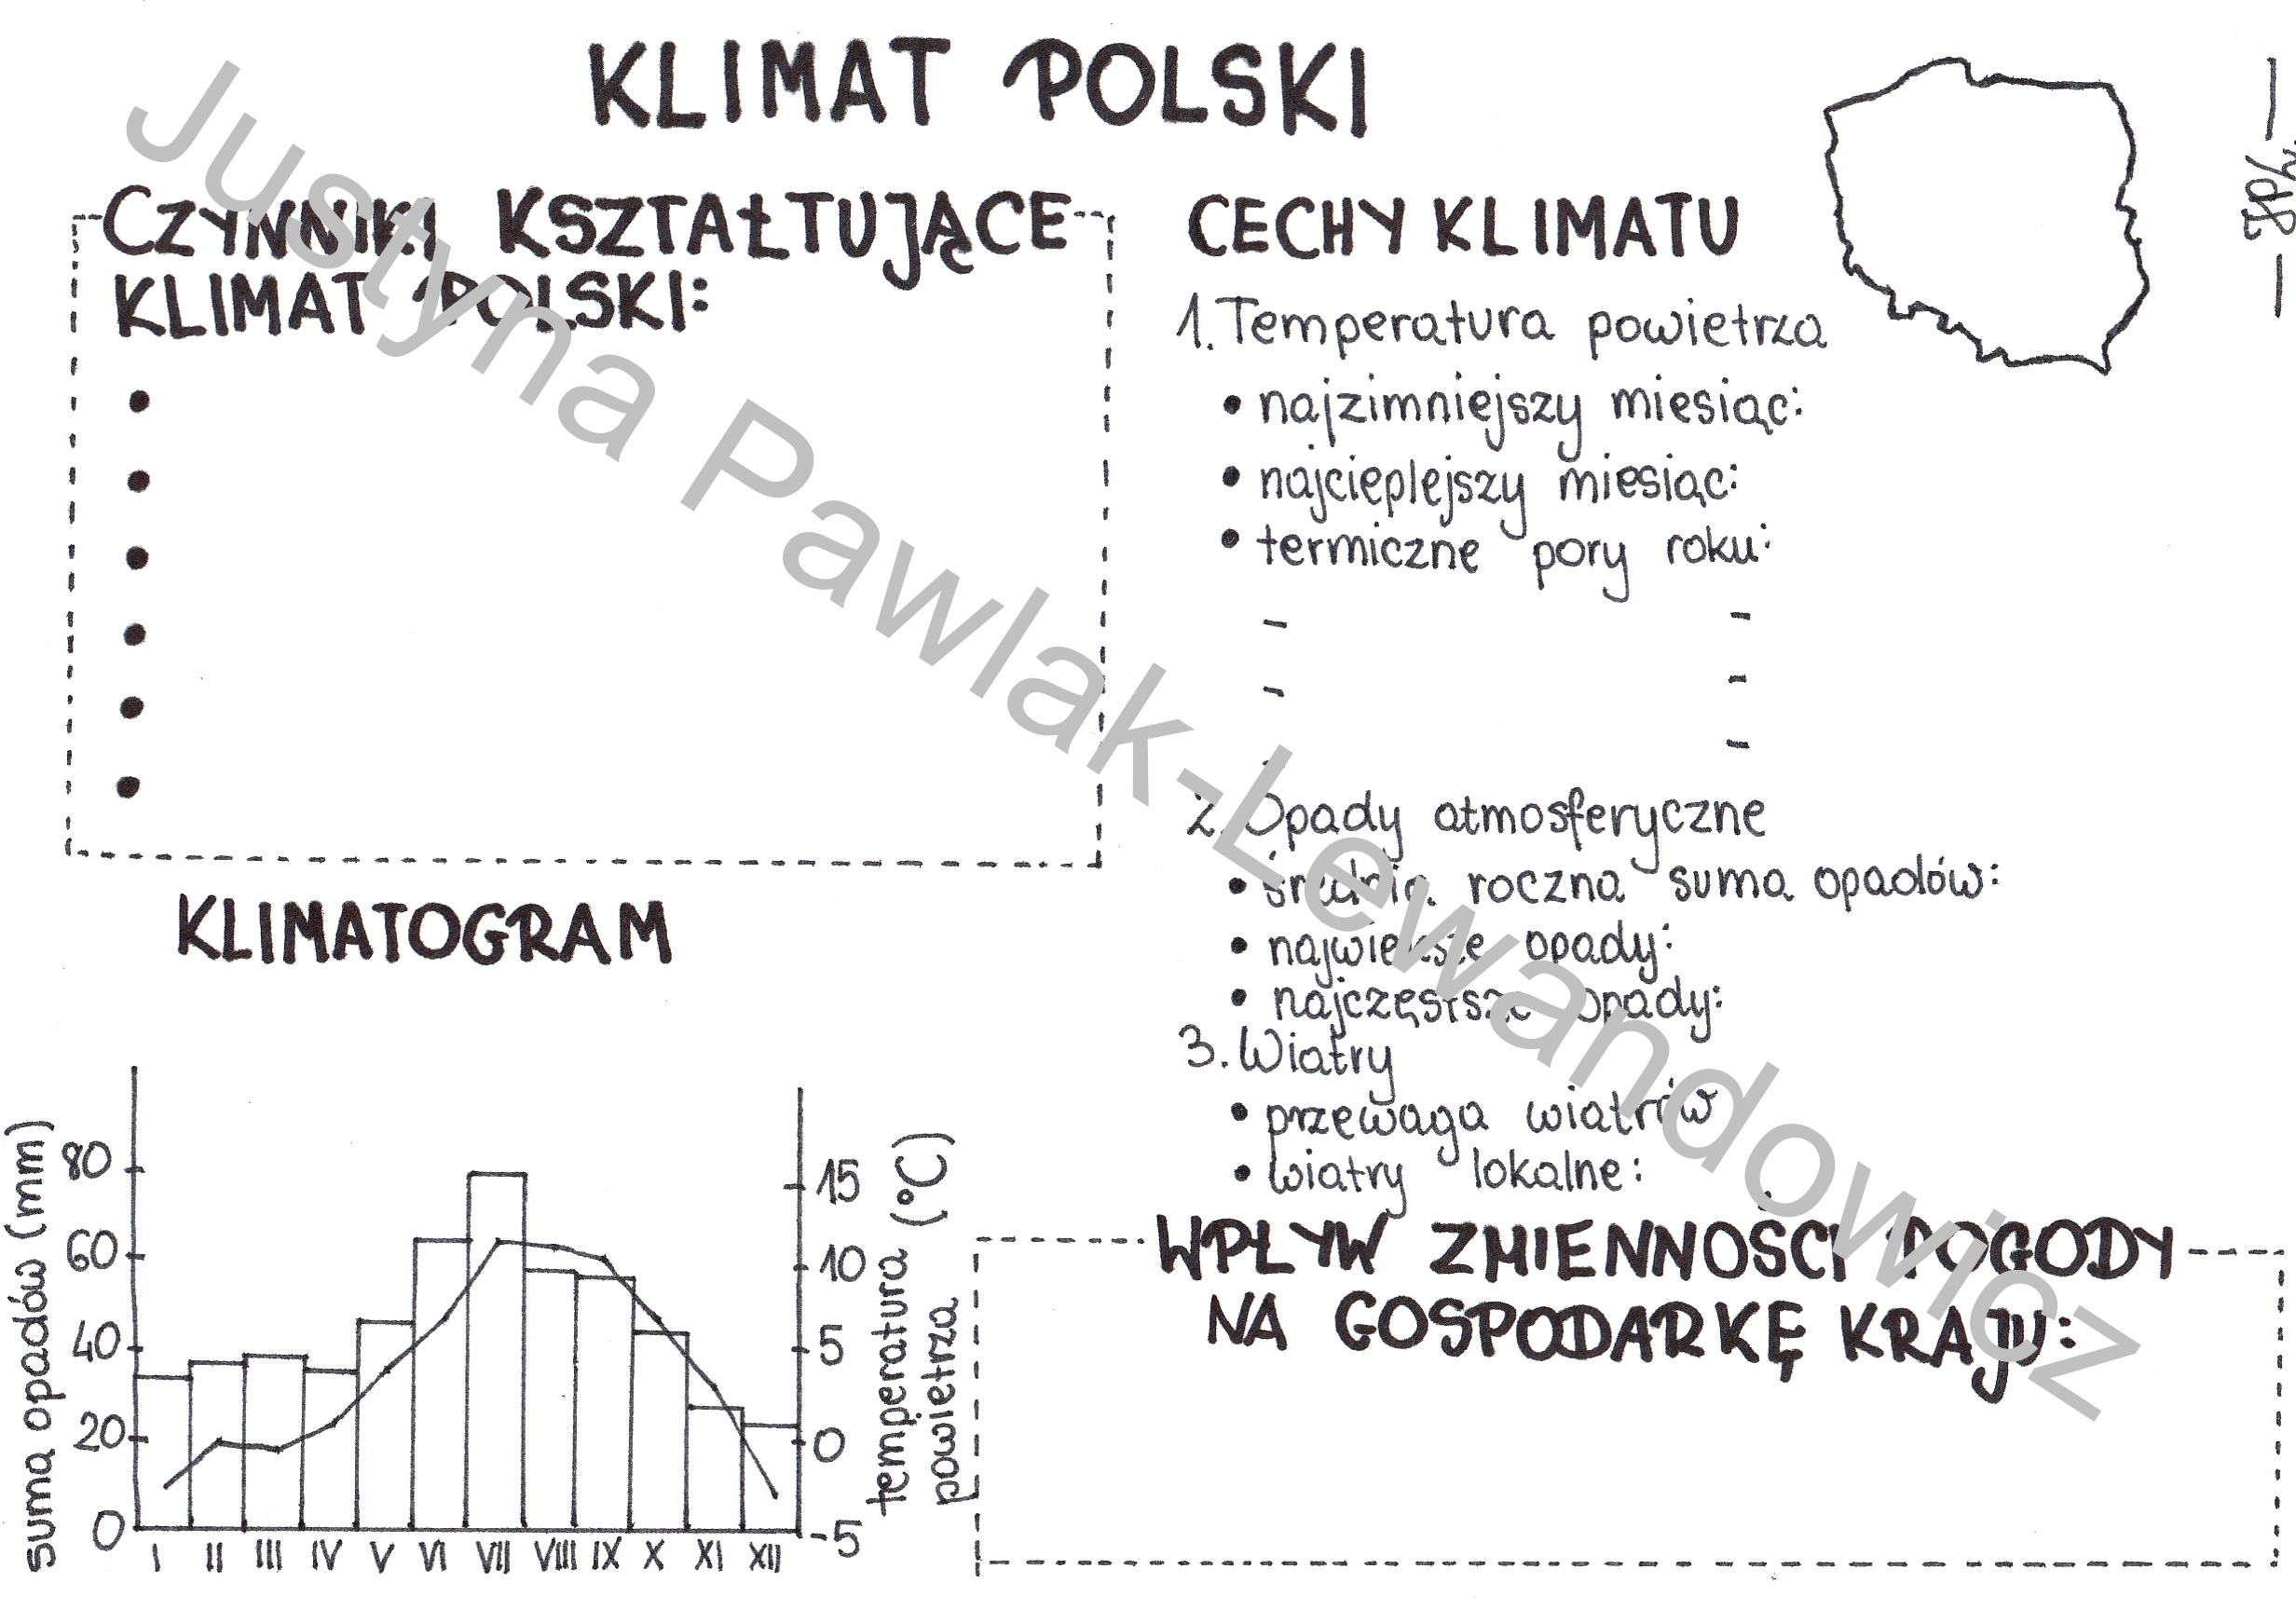 KLIMAT POLSKI
CZYNNIKI KSZTAŁTUJĄCE
KLIMAT POLSKI:
CECHY KLIMATU
1. Temperatura powietrza
• najzimniejszy miesiąc:
• najcieplejszy miesiąc:
• termiczne pory roku:
-
-
-
-
-
-
2. Opady atmosferyczne
• średnia roczna suma opadów:
• największe opady:
• najczęstsze opady:
3. Wiatry
• przewaga wiatrów
• wiatry lokalne:
KLIMATOGRAM
suma opadów (mm)
80
60
40
20
0
I II III IV V VI VII VIII IX X XI XII
15
10
5
0
-5
temperatura (°C)
powietrza
WPŁYW ZMIENNOŚCI POGODY
NA GOSPODARKĘ KRAJU:
Justyna Pawlak-Lewandowicz